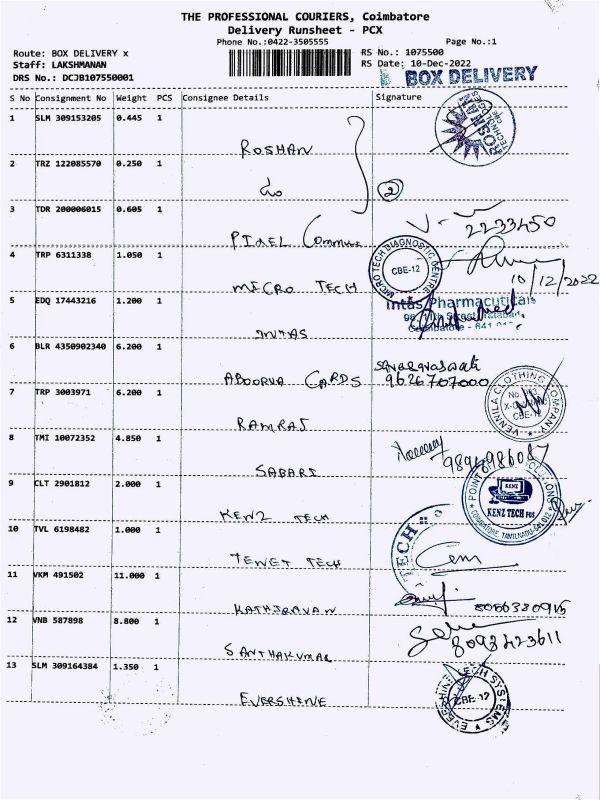 THE PROFESSIONAL COURIERS, Coimbatore
Delivery Runsheet - PCX
Phone No.:0422-3505555
Page No.:1
Route: BOX DELIVERY x
RS No.: 1075500
Staff: LAKSHMANAN
RS Date: 10-Dec-2022
DRS No.: DCJB107550001
BOX DELIVERY
S No Consignment No Weight PCS Consignee Details Signature
1 SLM 309153205 0.445 1
ROSHAN
2 TRZ 122085570 0.250 1
do
2
3 TDR 200006015 0.605 1
2233450
PIXEL
4 TRP 6311338 1.050 1
MICRO TECH DIAGNOSTIC CENTRE
CBE-12
10/12/2022
MICRO TECH
5 EDQ 17443216 1.200 1
Intas Pharmacuticals
Coimbatore - 641
INTAS
6 BLR 4350902340 6.200 1
9626707000
ABOORVA CARDS
7 TRP 3003971 6.200 1
VENNILA CLOTHING COMPANY
CBE-12
RAMRAJ
8 TMI 10072352 4.850 1
SABARI
9 CLT 2901812 2.000 1
POINT
KENZ TECH POS
COIMBATORE, TAMILNADU
KENZ TECH
10 TVL 6198482 1.000 1
TECH
TENET TECH
11 VKM 491502 11.000 1
KATHIRAVAN
12 VNB 587898 8.800 1
8098423611
SANTHAKUMAR
13 SLM 309164384 1.350 1
EVERSHINE TECH SYSTEMS
CBE-12
EVERSHINE